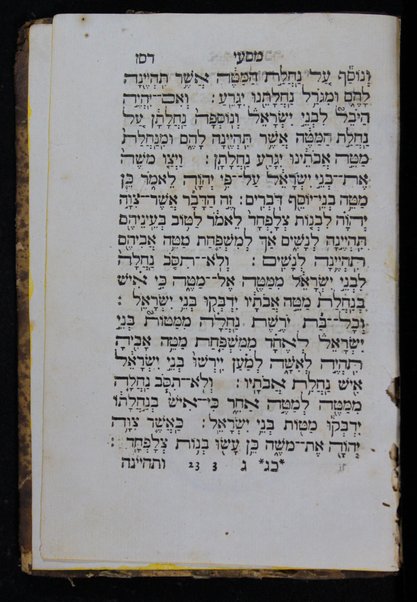 מסעי רסו
וְנוֹסַ֕ף עַ֚ל נַחֲלַ֣ת הַמַּטֶּ֔ה אֲשֶׁ֥ר תִּהְיֶ֖ינָה
לָהֶ֑ם וּמִגֹּרַ֥ל נַחֲלָתֵ֖נוּ יִגָּרֵֽעַ׃ וְאִם־יִהְיֶ֣ה
הַיֹּבֵל֮ לִבְנֵ֣י יִשְׂרָאֵל֒ וְנֽוֹסְפָה֙ נַחֲלָתָ֔ן עַ֚ל
נַחֲלַ֣ת הַמַּטֶּ֔ה אֲשֶׁ֥ר תִּהְיֶ֖ינָה לָהֶ֑ם וּמִֽנַּחֲלַת֙
מַטֵּ֣ה אֲבֹתֵ֔ינוּ יִגָּרַ֖ע נַחֲלָתָֽן׃ וַיְצַ֤ו מֹשֶׁה֙
אֶת־בְּנֵ֣י יִשְׂרָאֵ֔ל עַל־פִּ֥י יְהוָ֖ה לֵאמֹ֑ר כֵּ֛ן
מַטֵּ֥ה בְנֵֽי־יוֹסֵ֖ף דֹּבְרִֽים׃ זֶ֣ה הַדָּבָ֞ר אֲשֶׁר־צִוָּ֣ה
יְהוָ֗ה לִבְנ֤וֹת צְלָפְחָד֙ לֵאמֹ֔ר לַטּ֥וֹב בְּעֵינֵיהֶ֖ם
תִּהְיֶ֣ינָה לְנָשִׁ֑ים אַ֗ךְ לְמִשְׁפַּ֛חַת מַטֵּ֥ה אֲבִיהֶ֖ם
תִּהְיֶ֥ינָה לְנָשִֽׁים׃ וְלֹֽא־תִסֹּ֤ב נַחֲלָה֙
לִבְנֵ֣י יִשְׂרָאֵ֔ל מִמַּטֶּ֖ה אֶל־מַטֶּ֑ה כִּ֣י אִ֗ישׁ
בְּנַחֲלַת֙ מַטֵּ֣ה אֲבֹתָ֔יו יִדְבְּק֖וּ בְּנֵ֥י יִשְׂרָאֵֽל׃
וְכָל־בַּ֞ת יֹרֶ֣שֶׁת נַחֲלָ֗ה מִמַּטּוֹת֮ בְּנֵ֣י
יִשְׂרָאֵל֒ לְאֶחָ֗ד מִמִּשְׁפַּ֛חַת מַטֵּ֥ה אָבִ֖יהָ
תִּהְיֶ֣ה לְאִשָּׁ֑ה לְמַ֗עַן יִֽירְשׁוּ֙ בְּנֵ֣י יִשְׂרָאֵ֔ל
אִ֖ישׁ נַחֲלַ֥ת אֲבֹתָֽיו׃ וְלֹֽא־תִסֹּ֧ב נַחֲלָ֛ה
מִמַּטֶּ֖ה לְמַטֶּ֣ה אַחֵ֑ר כִּי־אִישׁ֙ בְּנַ֣חֲלָת֔וֹ
יִדְבְּק֕וּ מַטּ֖וֹת בְּנֵ֥י יִשְׂרָאֵֽל׃ כַּאֲשֶׁ֛ר צִוָּ֥ה
יְהוָ֖ה אֶת־מֹשֶׁ֑ה כֵּ֥ן עָשׂ֖וּ בְּנ֥וֹת צְלָפְחָֽד׃
*כג* ג 3 23 ותהיינה